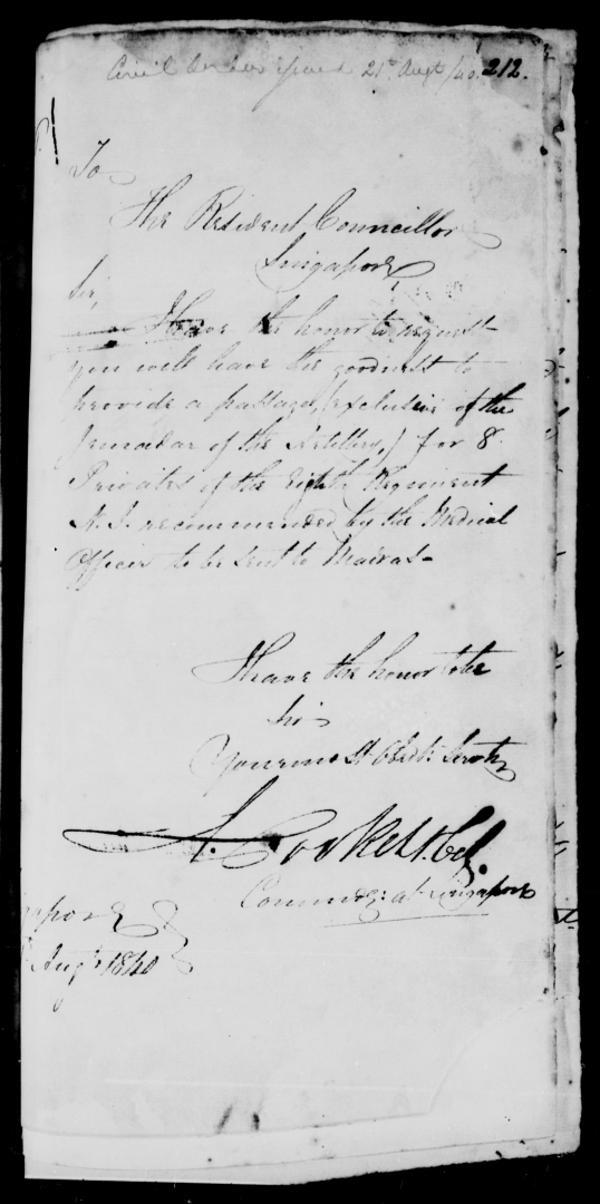 Civil Order issued 21st Augt /40. 212.
To
The Resident Councillor
Singapore
Sir,
I Have the honor to request
you will have the goodness to
provide a passage, (exclusive of the
Jemadar of the Artillery,) for 8
Privates of the Eighth Regiment
N.I. recommended by the Medical
Officer to be sent to Madras-
I have the honor to be
Sir
Your most Obedt: Servt
Cooke Lt. Col.
Commdg: at Singapore
apore
Augt 1840